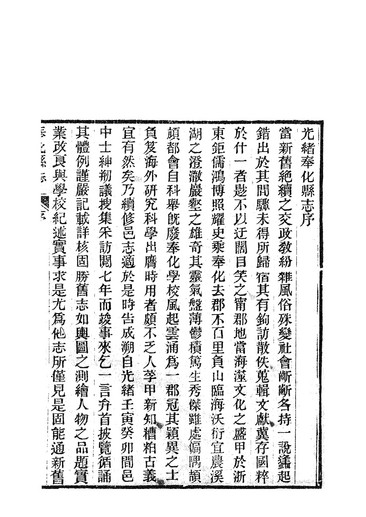 光緒奉化縣志序
當新舊絶續之交政敎紛雜風俗殊變社會齗齗各持一說蠭起
錯出於其間驟未得所歸宿其有鉤訪散佚蒐輯文獻冀存國粹
於什一者尟不以迂闊目笑之甯郡地當海澨文化之盛甲於浙
東鉅儒鴻博照耀史乘奉化去郡不百里負山臨海沃衍宜農溪
湖之澄澈巖壑之雄奇其靈氣盤薄鬱積篤生秀傑雖處偏隅頡
頏都會自科舉旣廢奉化學校風起雲涌爲一郡冠其穎異之士
負笈海外研究科學出膺時用者顧不乏人孚甲新知糟粕古義
宜有然矣乃續修邑志適於是時告成朔自光緒壬寅癸卯間邑
中士紳剏議搜集采訪閱七年而竣事來乞一言弁首披覽循誦
其體例謹嚴記載詳核固勝舊志如輿圖之測繪人物之品題實
業改良與學校紀述實事求是尤爲他志所僅見是固能通新舊